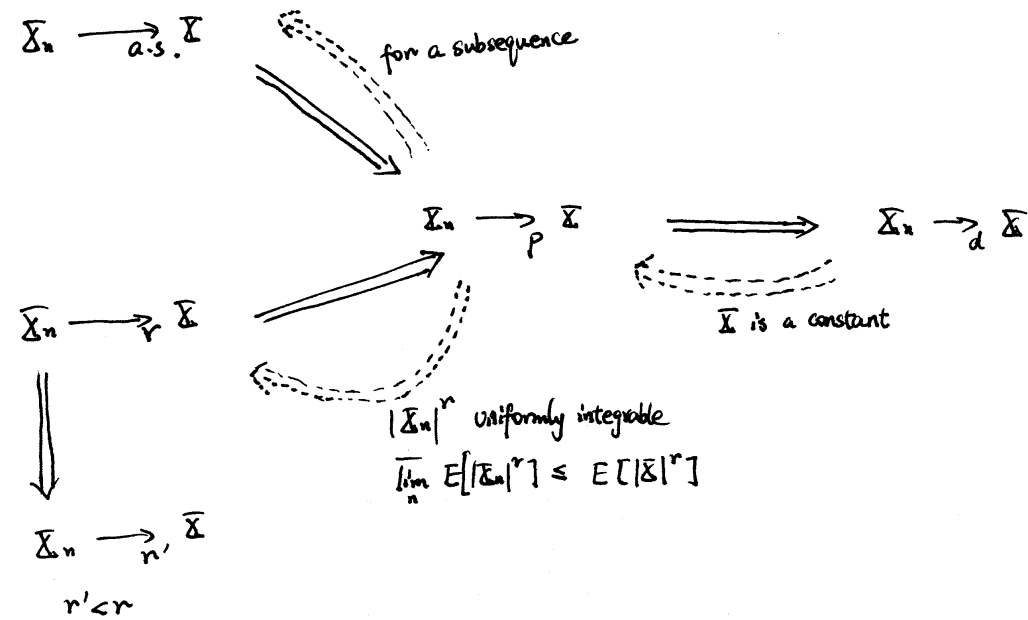 X̄ₙ ⟶ a.s. X̄
for a subsequence
X̄ₙ ⟶ p X̄
X̄ₙ ⟶ d X̄
X̄ₙ ⟶ r X̄
X̄ is a constant
|X̄ₙ|ʳ uniformly integrable
lim̅ₙ E[|X̄ₙ|ʳ] ≤ E[|X̄|ʳ]
X̄ₙ ⟶ r' X̄
r' < r